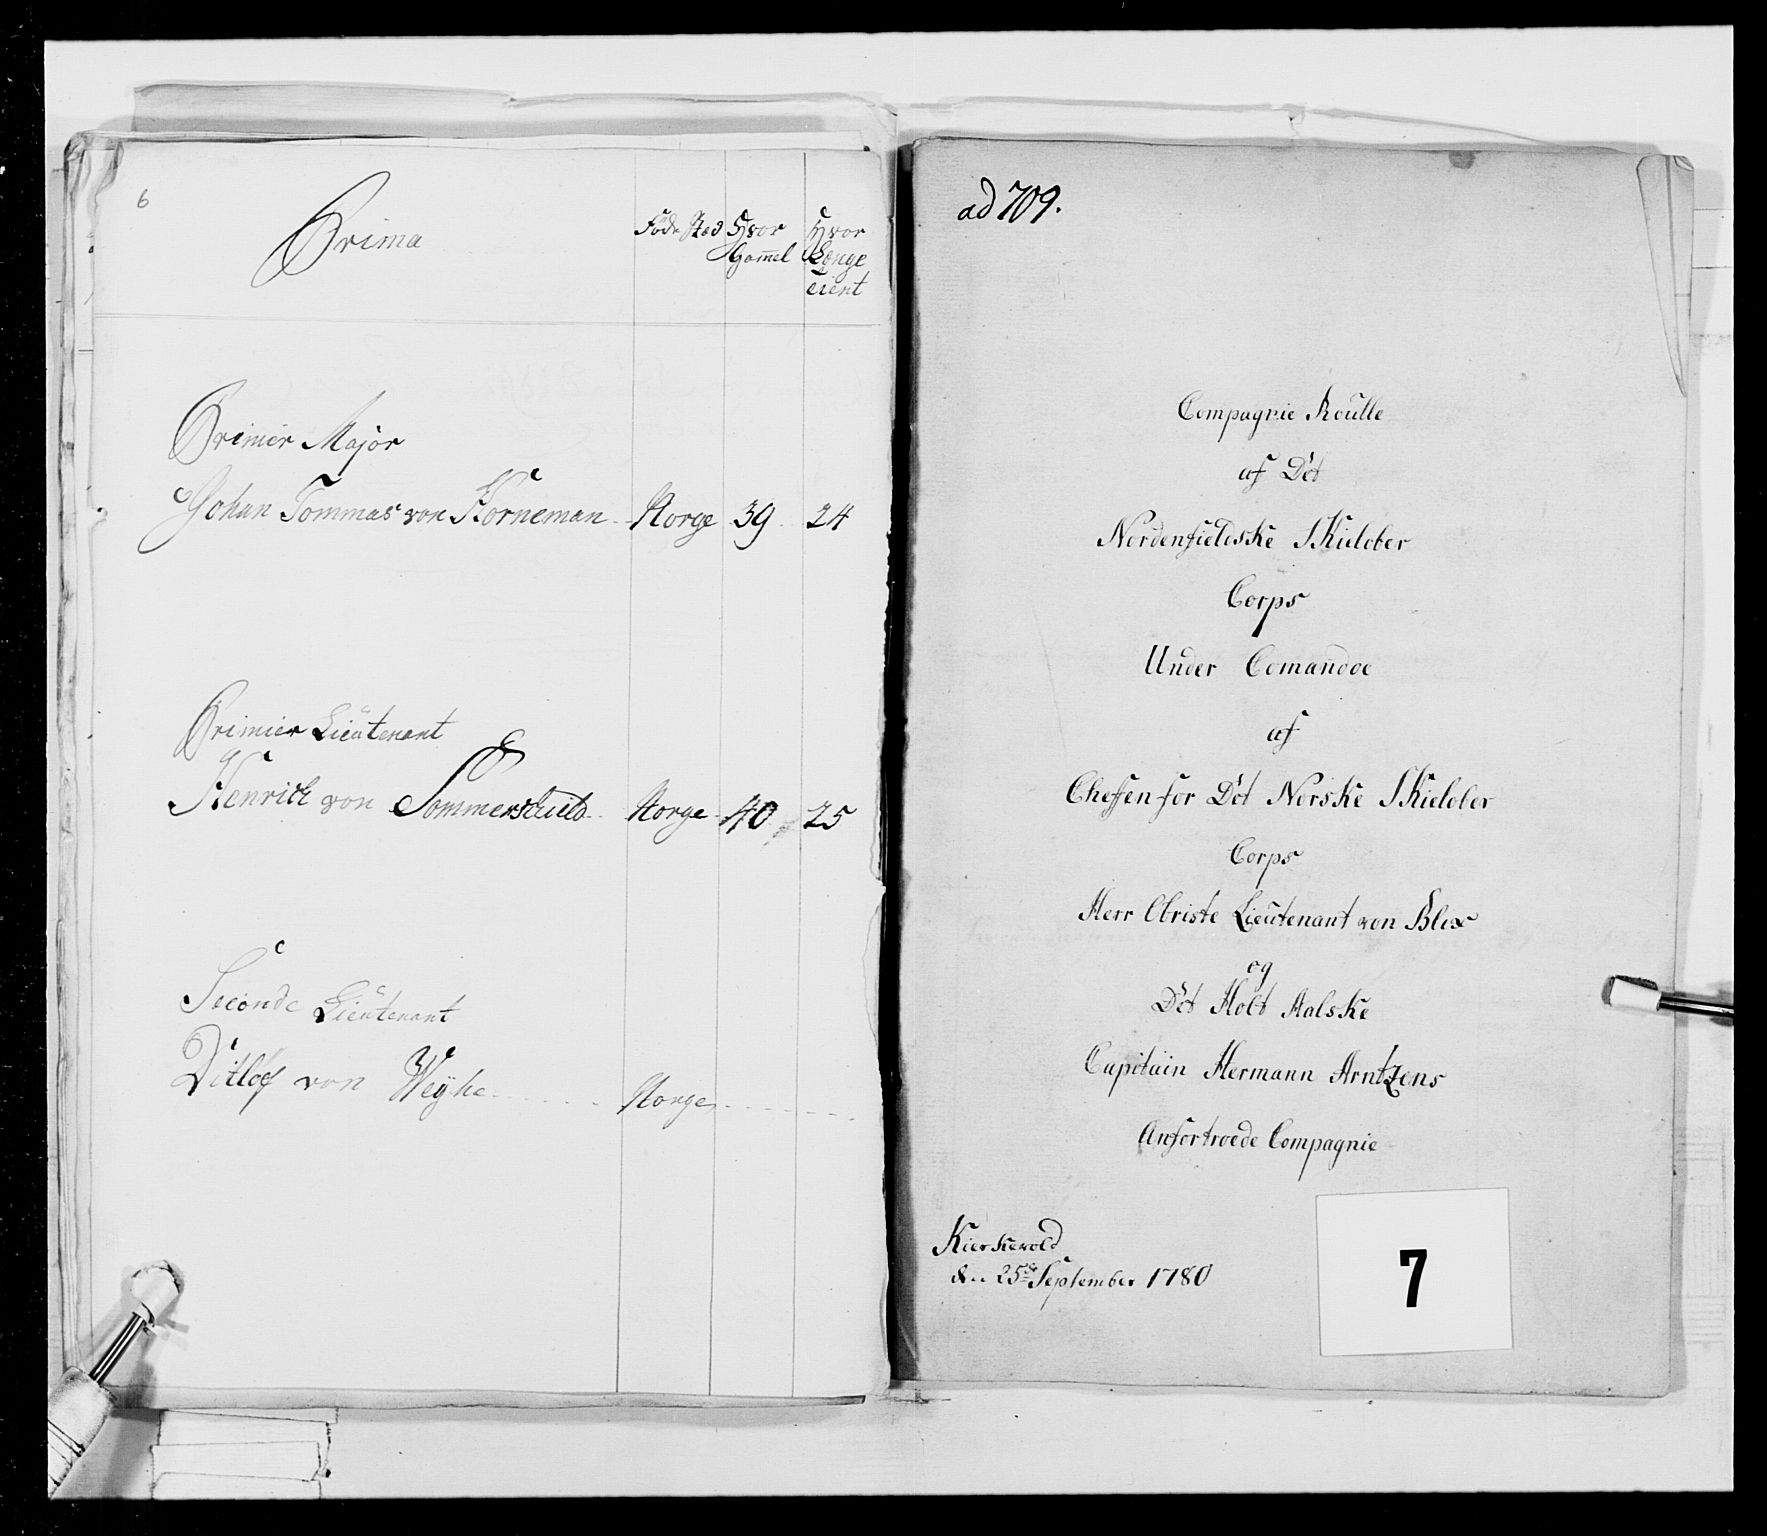 6
Prima
Föde Sted
Hvor Gammel
Hvor Længe tient
Primier Major
Johan Tommas von Korneman Norge 39 24
Primier Lieutenant
Henrich von Sommerschield Norge 40 25
Seconde Lieutenant
Ditlef von Weyhe Norge
ad 709.
Compagnie Roulle
af Det
Nordenfieldske Skielober
Corps
Under Comandoe
af
Cheffen for Det Norske Skielober
Corps
Herr Obriste Lieutenant von Blix
og
Det Holt Aalske
Capitain Hermann Arntzens
Anfortroede Compagnie
Kierkevold
den 25de September 1780
7